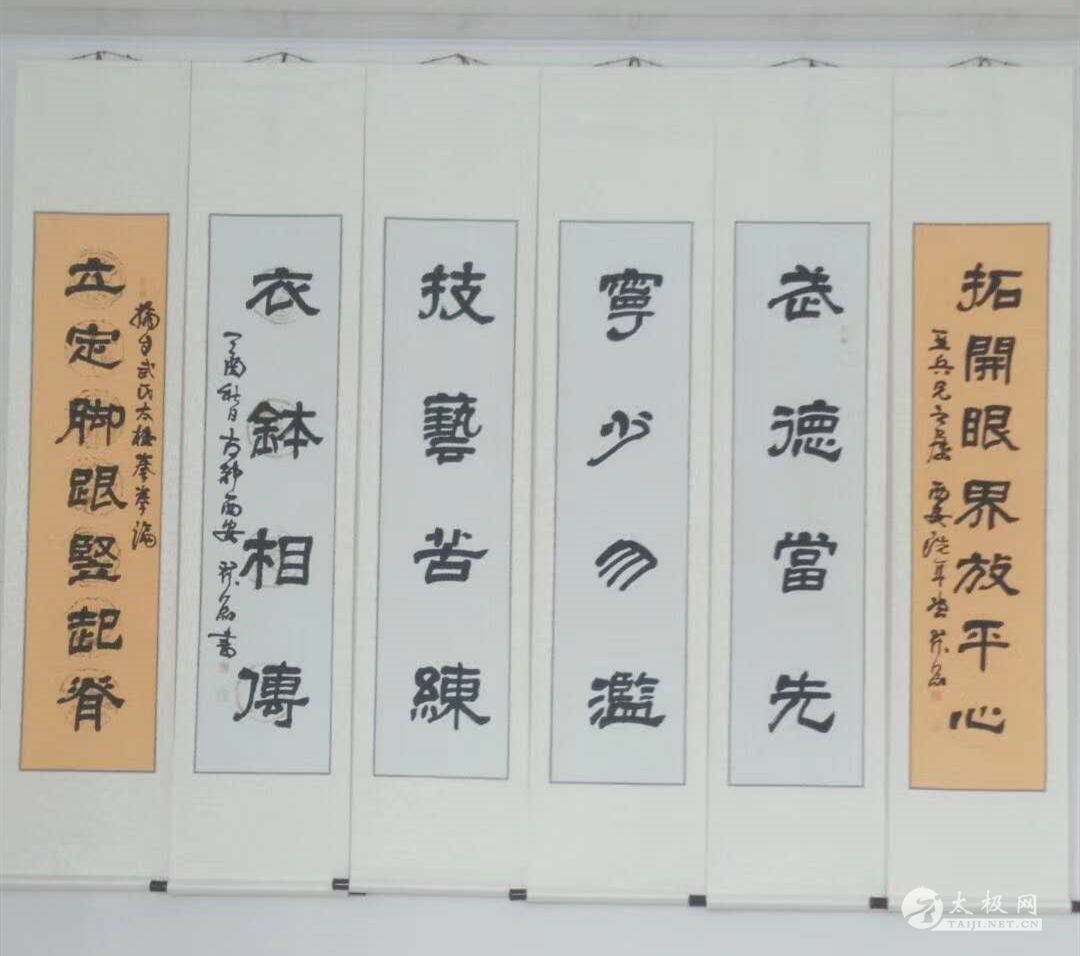 拓開眼界放平心
武德當先
寧少勿濫
技藝苦練
衣鉢相傳
丁酉秋日古都西安
立定脚跟竪起脊
摘自武氏太極拳拳論
太极网
TAIJI.NET.CN